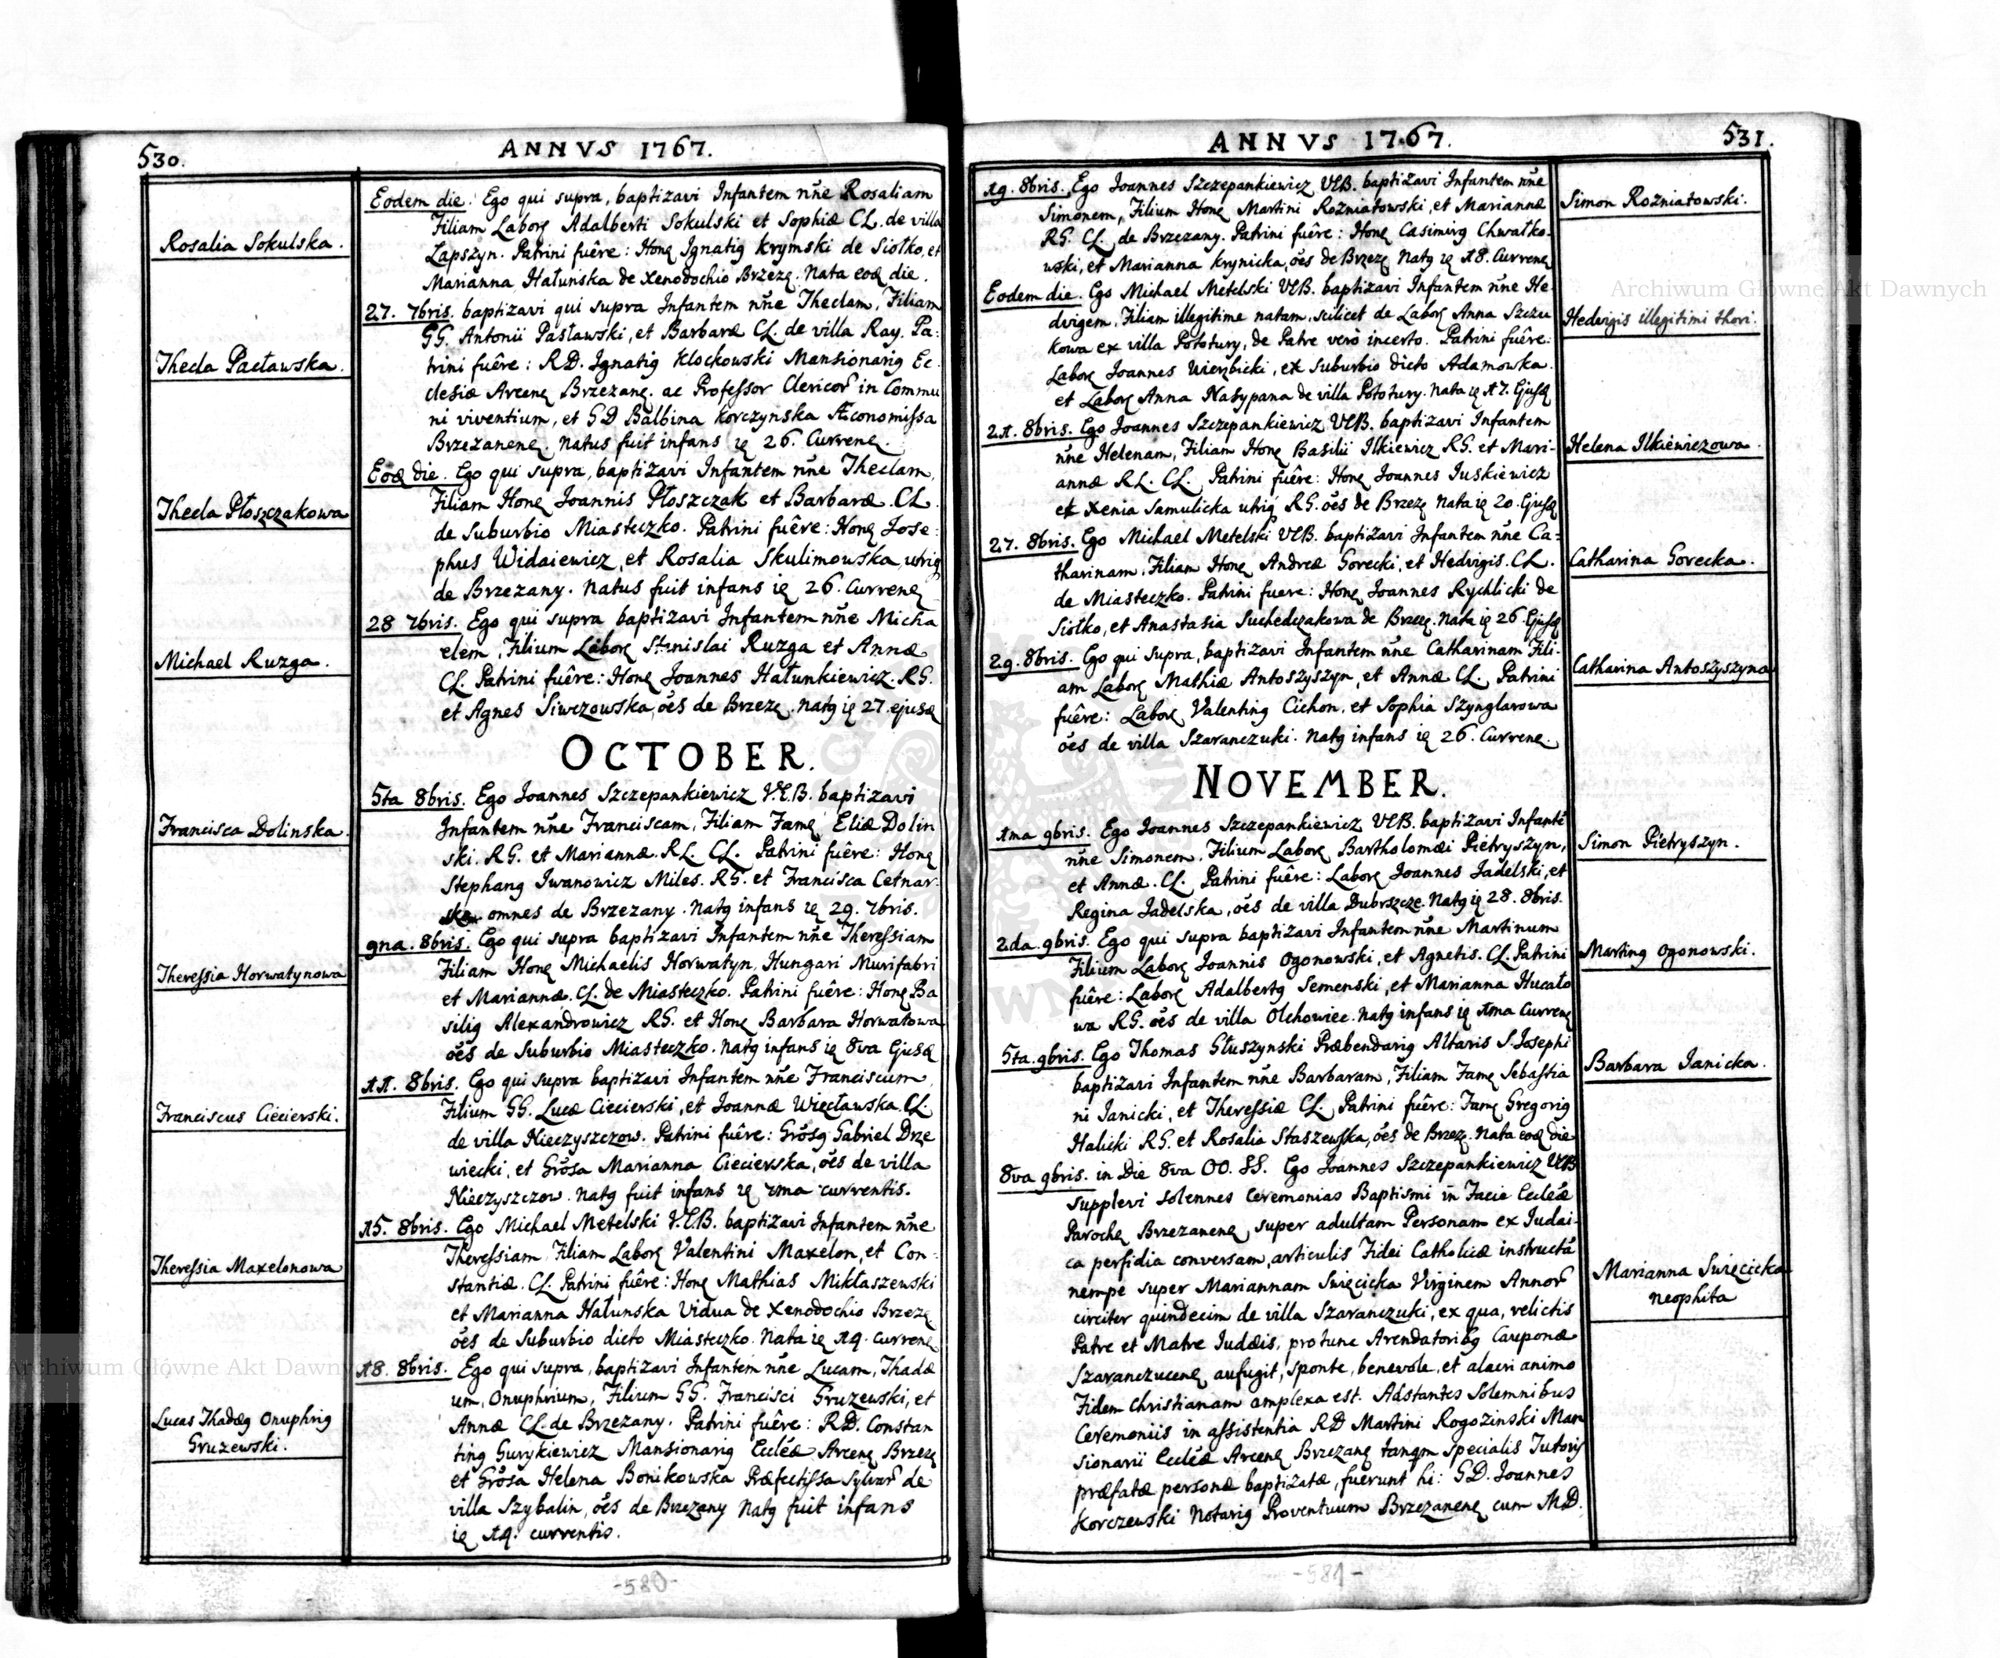 530.
ANNVS 1767.
Rosalia Sokulska.
Thecla Pacławska.
Thecla Płoszczakowa
Michael Ruzga.
Francisca Dolinska.
Theressia Horwatynowa
Franciscus Ciecierski.
Theressia Maxelonowa
Lucas Thadæg Onuphrig
Gruzewski.
Eodem die. Ego qui supra, baptizavi Infantem nn̄e Rosaliam
Filiam Laborę Adalberti Sokulski et Sophiæ CL. de villa
Lapszyn. Patrini fuêre: Honę Ignatig Krymski de Siołko, et
Marianna Hałunska de Xenodochio Brzezę. Nata eoę die.
27. 7bris. baptizavi qui supra Infantem nn̄e Theclam, Filiam
GG. Antonii Pasławski, et Barbaræ CL. de villa Ray. Pa:
trini fuêre: RD. Ignatig Klockowski Mansionarig Ec:
clesiæ Arcenę Brzezanę. ac Professor Clericor̄ in Commu
ni viventium, et GD Balbina Korczynska Æconomissa
Brzezanenę. Natus fuit infans ię 26. Currenę.
Eoę die. Ego qui supra, baptizavi Infantem nn̄e Theclam,
Filiam Honę Joannis Płoszczak et Barbaræ. CL.
de Suburbio Miasteczko. Patrini fuêre: Honę Jose:
phus Widaiewicz, et Rosalia Skulimowska, utrig
de Brzezany. Natus fuit infans ię 26. Currenę
28 7bris. Ego qui supra baptizavi Infantem nn̄e Micha
elem, Filium Laborę Stanislai Ruzga et Annæ
CL. Patrini fuêre: Honę Joannes Hałunkiewicz. RG.
et Agnes Siwczowska, ōēs de Brzezę. Natg ię 27. ejusę
OCTOBER.
5ta 8bris. Ego Joannes Szczepankiewicz V.C.B. baptizavi
Infantem nn̄e Franciscam, Filiam Famę Eliæ Dolin
ski. RG. et Mariannæ. RL. CL. Patrini fuêre: Honę
Stephang Iwanowicz Miles. RG. et Francisca Cetnar:
ska omnes de Brzezany. Natg infans ię 29. 7bris.
9na. 8bris. Ego qui supra baptizavi Infantem nn̄e Theressiam
Filiam Honę Michaelis Horwatyn, Hungari Murifabri
et Mariannæ. CL. de Miasteczko. Patrini fuêre: Honę Ba
silig Alexandrowicz RG. et Honę Barbara Horwatowa
ōēs de Suburbio Miasteczko. Natg infans ię 8va Ejusę
11. 8bris. Ego qui supra baptizavi Infantem nn̄e Franciscum,
Filium GG. Lucæ Ciecierski, et Joannæ Więcławska. CL.
de villa Nieczyszczow. Patrini fuêre: Gr̄osg Gabriel Drze
wiecki, et Gr̄osa Marianna Ciecierska, ōēs de villa
Nieczyszczow. Natg fuit infans ię 7ma currentis.
15. 8bris. Ego Michael Metelski V.C.B. baptizavi Infantem nn̄e
Theressiam Filiam Laborę Valentini Maxelon, et Con:
stantiæ. CL. Patrini fuêre: Honę Mathias Miklaszewski
et Marianna Hałunska Vidua de Xenodochio Brzezę
ōēs de Suburbio dicto Miasteczko. Nata ię 14. currenę
18. 8bris. Ego qui supra, baptizavi Infantem nn̄e Lucam, Thadæ
um, Onuphrium, Filium GG. Francisci Gruzewski, et
Annæ CL. de Brzezany. Patrini fuêre: RD. Constan
ting Gurykiewicz Mansionarig Eccl̄æ Arcenę Brzezę
et Gr̄osa Helena Bonikowska Præfectissa Sylvar̄ de
villa Szybalin, ōēs de Brzezany Natg fuit infans
ię 14. currentis.
-580-
ANNVS 1767.
531.
19. 8bris. Ego Joannes Szczepankiewicz VCB. baptizavi Infantem nn̄e
Simonem, Filium Honę Martini Rozniatowski, et Mariannæ
RG. CL. de Brzezany. Patrini fuêre: Honę Casimirg Chwałko:
wski, et Marianna Krynicka, ōēs de Brzezę Natg ię 18. Currenę
Eodem die. Ego Michael Metelski VCB. baptizavi Infantem nn̄e He:
dvigem, Filiam illegitime natam, scilicet de Laborę Anna Szczu
kowa ex villa Potutury, de Patre verò incerto. Patrini fuêre:
Laborę Joannes Wierzbicki, ex suburbio dicto Adamowka.
et Laborę Anna Nasypana de villa Potutury. Nata ię 17. Ejusę
21. 8bris. Ego Joannes Szczepankiewicz VCB. baptizavi Infantem
nn̄e Helenam, Filiam Honę Basilii Ilkiewicz RG. et Mari:
annæ RL. CL. Patrini fuêre: Honę Joannes Juskiewicz
et Xenia Samulicka utrig RG. ōēs de Brzezę Nata ię 20. Ejusę
27. 8bris. Ego Michael Metelski VCB. baptizavi Infantem nn̄e Ca:
tharinam, Filiam Honę Andreæ Gorecki, et Hedvigis. CL.
de Miasteczko. Patrini fuere: Honę Joannes Rychlicki de
Siołko, et Anastasia Suchedczakowa de Brzezę. Nata ię 26. Ejusę
29. 8bris. Ego qui supra, baptizavi Infantem nn̄e Catharinam Fili:
am Laborę Mathiæ Antoszyszyn, et Annæ CL. Patrini
fuêre: Laborę Valenting Cichon, et Sophia Szynglarowa
ōēs de villa Szaranczuki. Natg infans ię 26. Currenę.
NOVEMBER.
1ma 9bris. Ego Joannes Szczepankiewicz VCB. baptizavi Infantē
nn̄e Simonem, Filium Laborę Bartholomæi Pietryszyn,
et Annæ. CL. Patrini fuêre: Laborę Joannes Jadelski, et
Regina Jadelska, ōēs de villa Dubrszcze. Natg ię 28. 8bris.
2da. 9bris. Ego qui supra baptizavi Infantem nn̄e Martinum
Filium Laborę Joannis Ogonowski, et Agnetis. CL. Patrini
fuêre: Laborę Adalbertg Semenski, et Marianna Hucało
wa RG. ōēs de villa Olchowiec. Natg infans ię 1ma Currenę
5ta. 9bris. Ego Thomas Głuszynski Præbendarig Altaris S. Josephi
baptizavi Infantem nn̄e Barbaram, Filiam Famę Sebastia
ni Janicki, et Theressiæ CL. Patrini fuêre: Famę Gregorig
Halicki RG. et Rosalia Staszewska, ōēs de Brzez. Nata eoę die
8va 9bris. in Die 8va OO. SS. Ego Joannes Szczepankiewicz VCB
supplevi solennes Ceremonias Baptismi in Facie Eccl̄æ
Parochę Brzezanenę, super adultam Personam ex Judai:
ca perfidia conversam, articulis Fidei Catholicæ instructā
nempe super Mariannam Swięcicka Virginem Annor̄
circiter quindecim de villa Szaranczuki, ex qua, relictis
Patre et Matre Judæis, protunc Arendatoribg Cauponæ
Szaranczucenę aufugit, sponte, benevole, et alacri animo
Fidem Christianam amplexa est. Adstantes Solemnibus
Ceremoniis in assistentia RD Martini Rogozinski Man
sionarii Eccl̄æ Arcenę Brzezanę tanqm specialis Tutoris
præfatæ personæ baptizatæ, fuerunt hi: G.D. Joannes
Korczewski Notarig Proventuum Brzezanenę cum M.D.
Simon Rozniatowski.
Hedvigis illegitimi thori.
Helena Ilkiewiczowa.
Catharina Gorecka.
Catharina Antoszyszyna
Simon Pietryszyn.
Marting Ogonowski.
Barbara Janicka.
Marianna Swięcicka
neophita
-581-
Archiwum Główne Akt Dawnych
Archiwum Główne Akt Dawnych